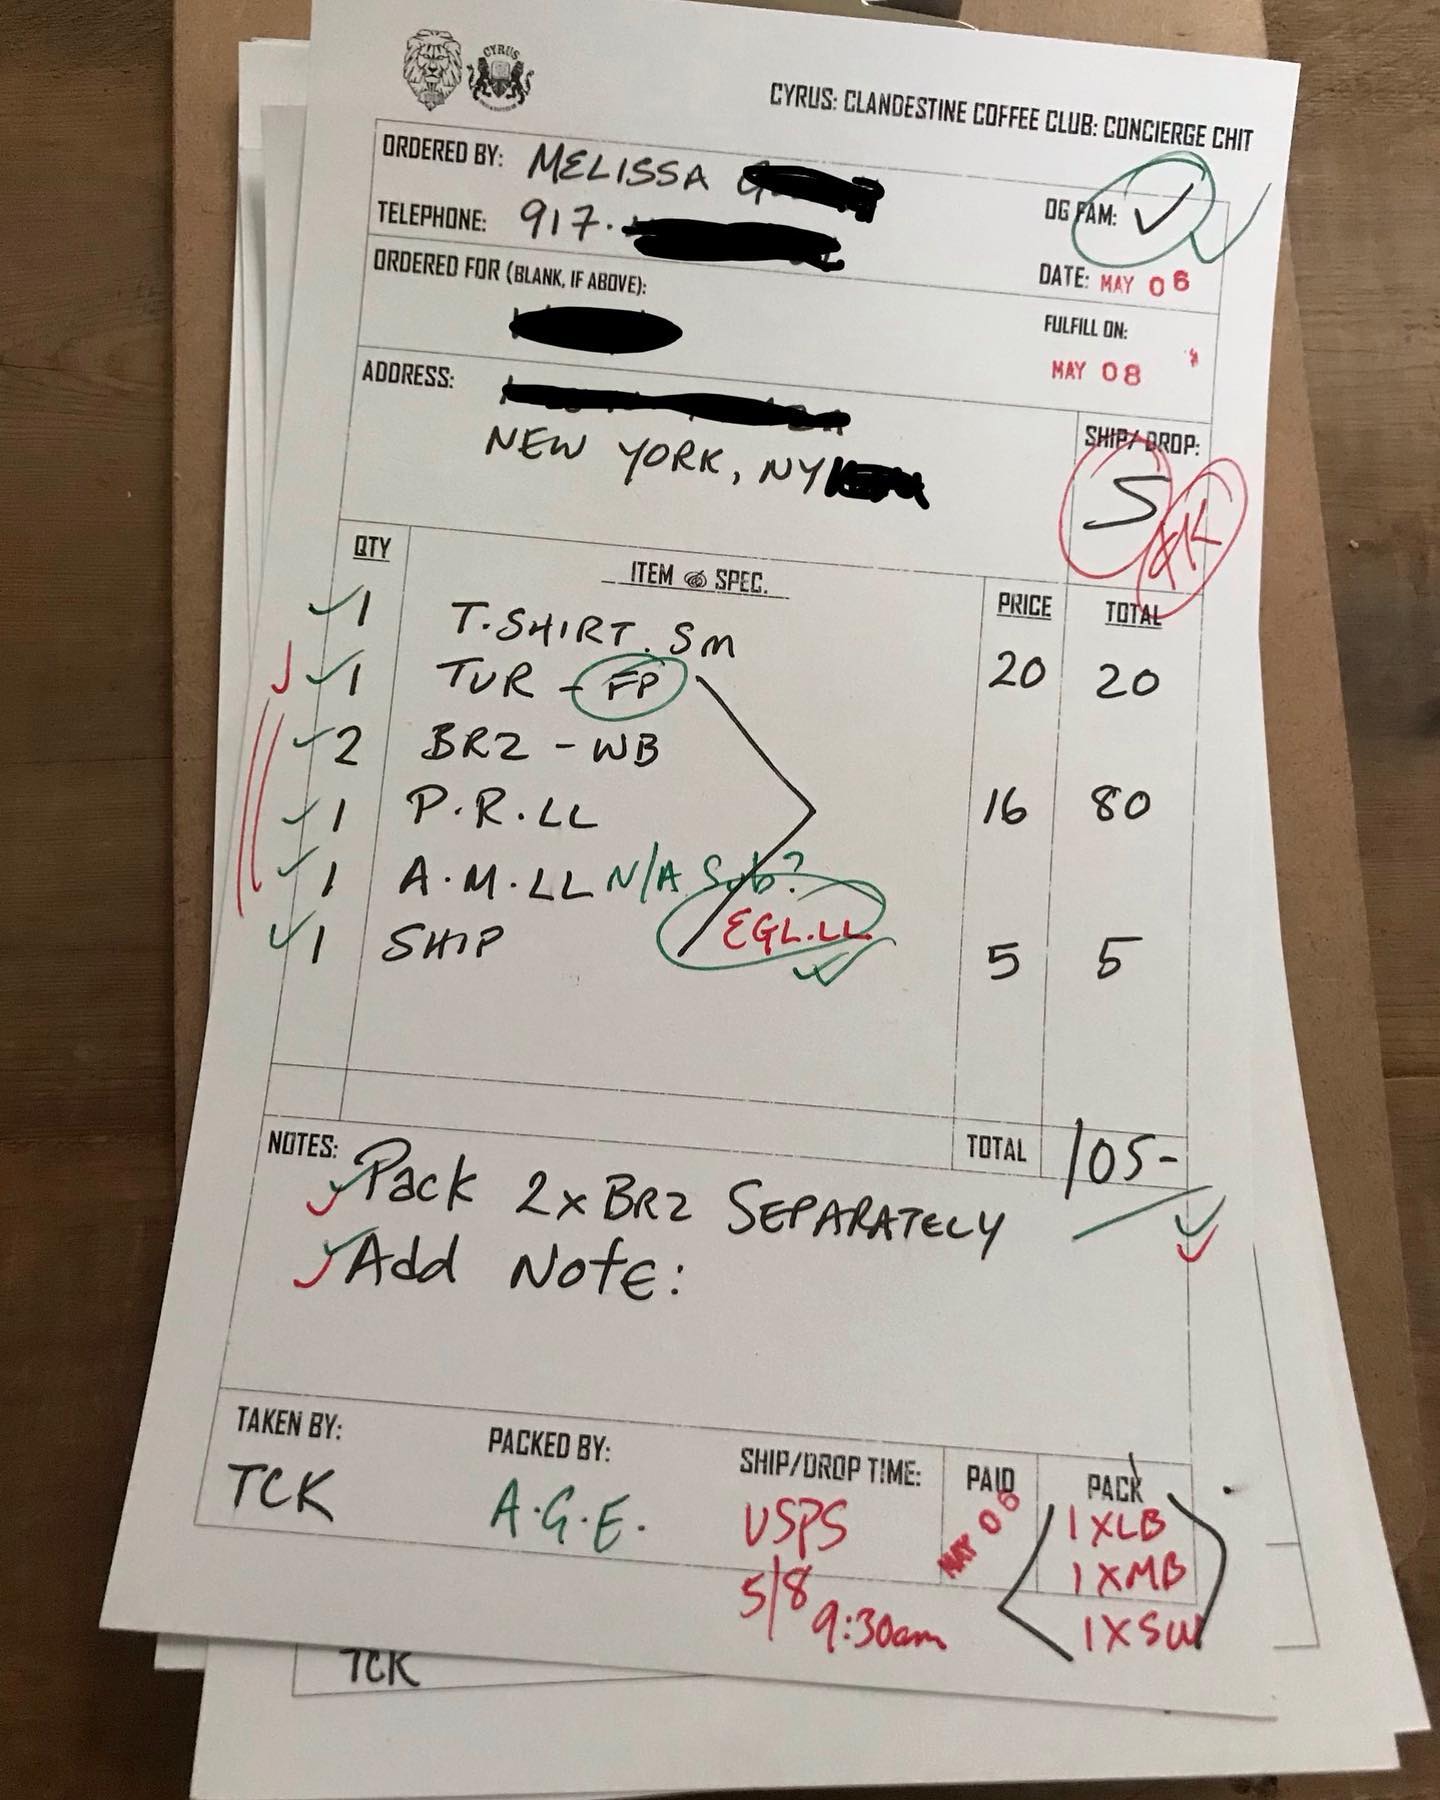 CYRUS
CYRUS: CLANDESTINE COFFEE CLUB: CONCIERGE CHIT
ORDERED BY: MELISSA G
OG FAM: ✓
TELEPHONE: 917.
DATE: MAY 06
ORDERED FOR (BLANK, IF ABOVE):
FULFILL ON:
MAY 08
ADDRESS:
NEW YORK, NY
SHIP/DROP:
S
QTY ITEM @ SPEC. PRICE TOTAL
1 T.SHIRT. SM 20 20
1 TUR - FP
2 BRZ - WB
1 P.R.LL 16 80
1 A.M.LL N/A Sub?
EGL.LL
1 SHIP 5 5
TOTAL 105-
NOTES: Pack 2xBRZ SEPARATELY
Add Note:
TAKEN BY: PACKED BY: SHIP/DROP TIME: PAID PACK
TCK A.G.E. USPS MAY 06 1XLB
5/8 9:30am 1XMB
1XSW
TCK